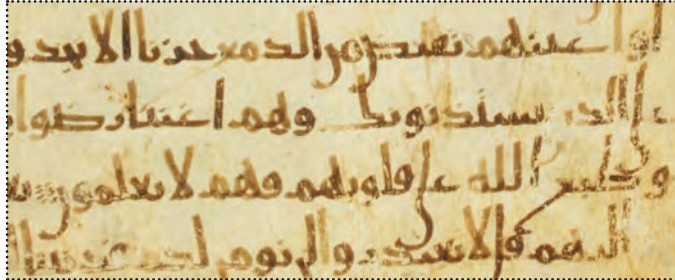 لوا واعينهم تفيض من الدمع حزنا الا يجدو
علي الذين يستذنونك وهم اغنيا رضوا
وطبع الله علي قلوبهم فهم لا يعلمون
اليهم قل لا تعتذروا لن نومن لكم قد نبانا